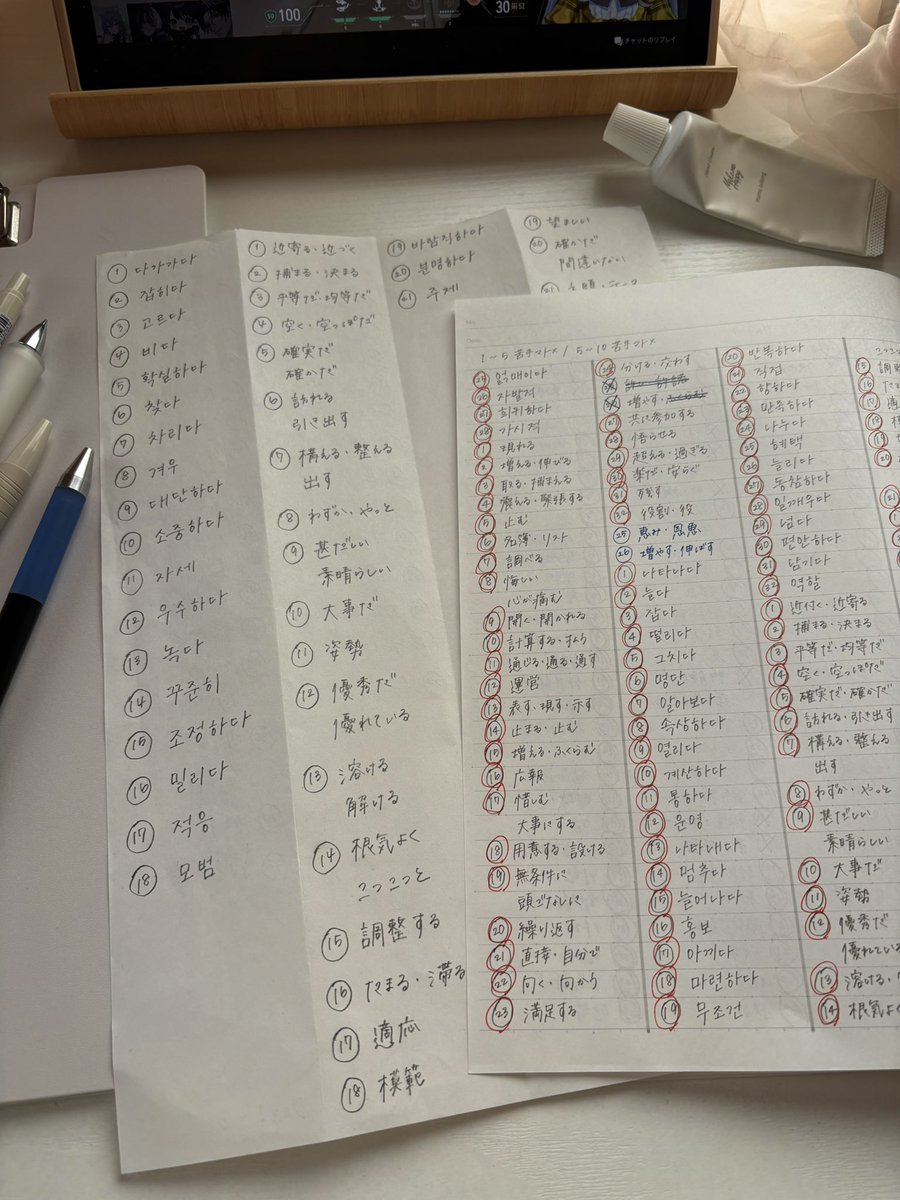 100
30
S2
チャットのリプレイ
① 다가가다
② 잡히다
③ 고르다
④ 비다
⑤ 확실하다
⑥ 찾다
⑦ 차리다
⑧ 겨우
⑨ 대단하다
⑩ 소중하다
⑪ 자세
⑫ 우수하다
⑬ 녹다
⑭ 꾸준히
⑮ 조정하다
⑯ 밀리다
⑰ 적응
⑱ 모범
① 近寄る・近づく
② 捕まる・決まる
③ 平等だ・均等だ
④ 空く・空っぽだ
⑤ 確実だ
確かだ
⑥ 訪れる
引き出す
⑦ 構える・整える
出す
⑧ わずか・やっと
⑨ 甚だしい
素晴らしい
⑩ 大事だ
⑪ 姿勢
⑫ 優秀だ
優れている
⑬ 溶ける
解ける
⑭ 根気よく
こつこつと
⑮ 調整する
⑯ たまる・滞る
⑰ 適応
⑱ 模範
⑲ 바람직하다
⑳ 분명하다
㉑ 주제
⑲ 望ましい
⑳ 確かだ
間違いない
㉑
1〜5 苦手 / 5〜10 苦手
㉔ 얽매이다
㉖ 자발적
㉗ 희귀하다
㉘ 가시적
① 現れる
② 増える・伸びる
③ 取る・捕まえる
④ 震える・緊張する
⑤ 止む
⑥ 名簿・リスト
⑦ 調べる
⑧ 悔しい
心が痛む
⑨ 開く・開かれる
⑩ 計算する・払う
⑪ 通じる・通る・通す
⑫ 運営
⑬ 表す・現す・示す
⑭ 止まる・止む
⑮ 増える・ふくらむ
⑯ 広報
⑰ 惜しむ
大事にする
⑱ 用意する・設ける
⑲ 無条件に
頭ごなしに
⑳ 繰り返す
㉑ 直接・自分で
㉒ 向く・向かう
㉓ 満足する
㉔ 分ける・交わす
増やす・
㉗ 共に参加する
㉘ 悟らせる
㉙ 超える・過ぎる
㉚ 楽だ・安らぐ
㉛ 残す
㉜ 役割・役
㉕ 恵み・恩恵
㉖ 増やす・伸ばす
① 나타나다
② 늘다
③ 잡다
④ 떨리다
⑤ 그치다
⑥ 명단
⑦ 알아보다
⑧ 속상하다
⑨ 열리다
⑩ 계산하다
⑪ 통하다
⑫ 운영
⑬ 나타내다
⑭ 멈추다
⑮ 늘어나다
⑯ 홍보
⑰ 아끼다
⑱ 마련하다
⑲ 무조건
⑳ 반복하다
㉑ 직접
㉒ 향하다
㉓ 만족하다
㉔ 나누다
㉕ 혜택
㉖ 늘리다
㉗ 동참하다
㉘ 일깨우다
㉙ 넘다
㉚ 편안하다
㉛ 남기다
㉜ 역할
① 近付く・近寄る
② 捕まる・決まる
③ 平等だ・均等だ
④ 空く・空っぽだ
⑤ 確実だ・確かだ
⑥ 訪れる・引き出す
⑦ 構える・整える
出す
⑧ わずか・やっと
⑨ 甚だしい
素晴らしい
⑩ 大事だ
⑪ 姿勢
⑫ 優秀だ
優れている
⑬ 溶ける・
⑭ 根気よく
⑮ 調
⑯ た
⑰ 適
⑱ 模
⑳